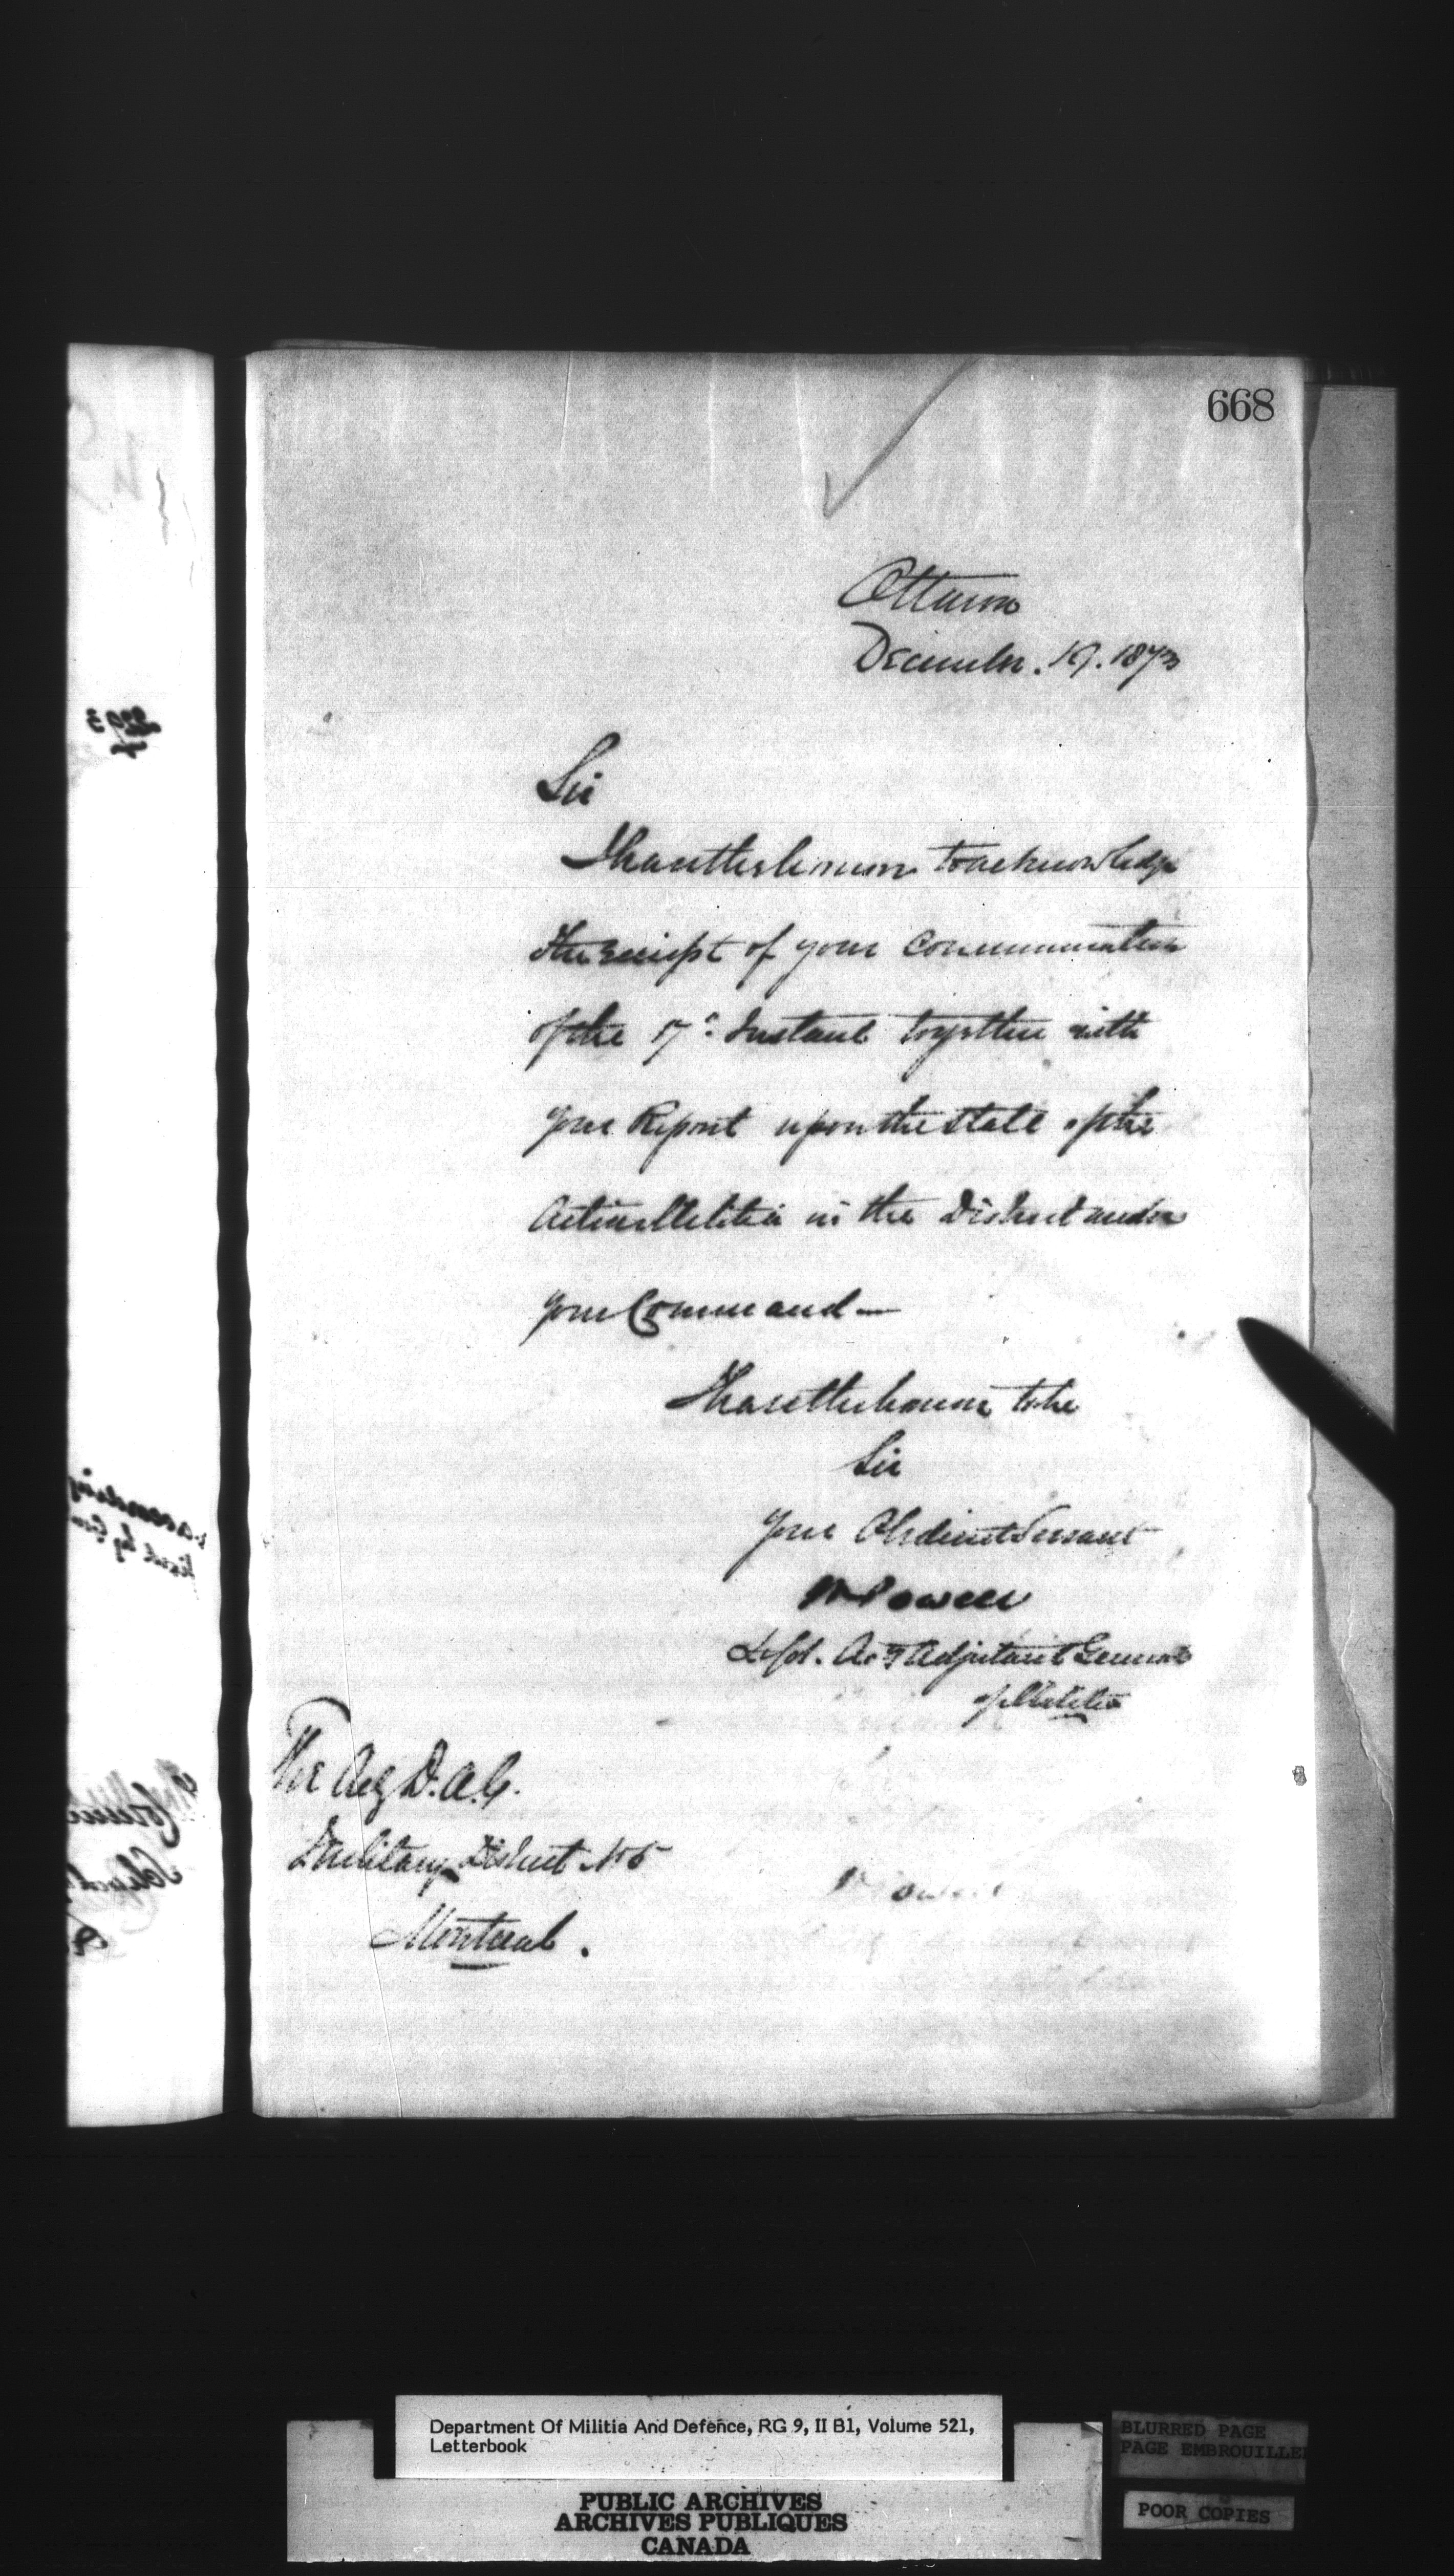 668
Ottawa
December. 19. 1873
Sir
I have the honor to acknowledge
the receipt of your Communication
of the 17th Instant together with
your Report upon the state of the
Active Militia in the District under
your Command—
I have the honor to be
Sir
Your Obedient Servant
W Powell
Actg Adjutant General
of Militia
The Actg D.A.G.
Military District No 5
Montreal.
Department Of Militia And Defence, RG 9, II B1, Volume 521,
Letterbook
PUBLIC ARCHIVES
ARCHIVES PUBLIQUES
CANADA
BLURRED PAGE
PAGE EMBROUILLE
POOR COPIES